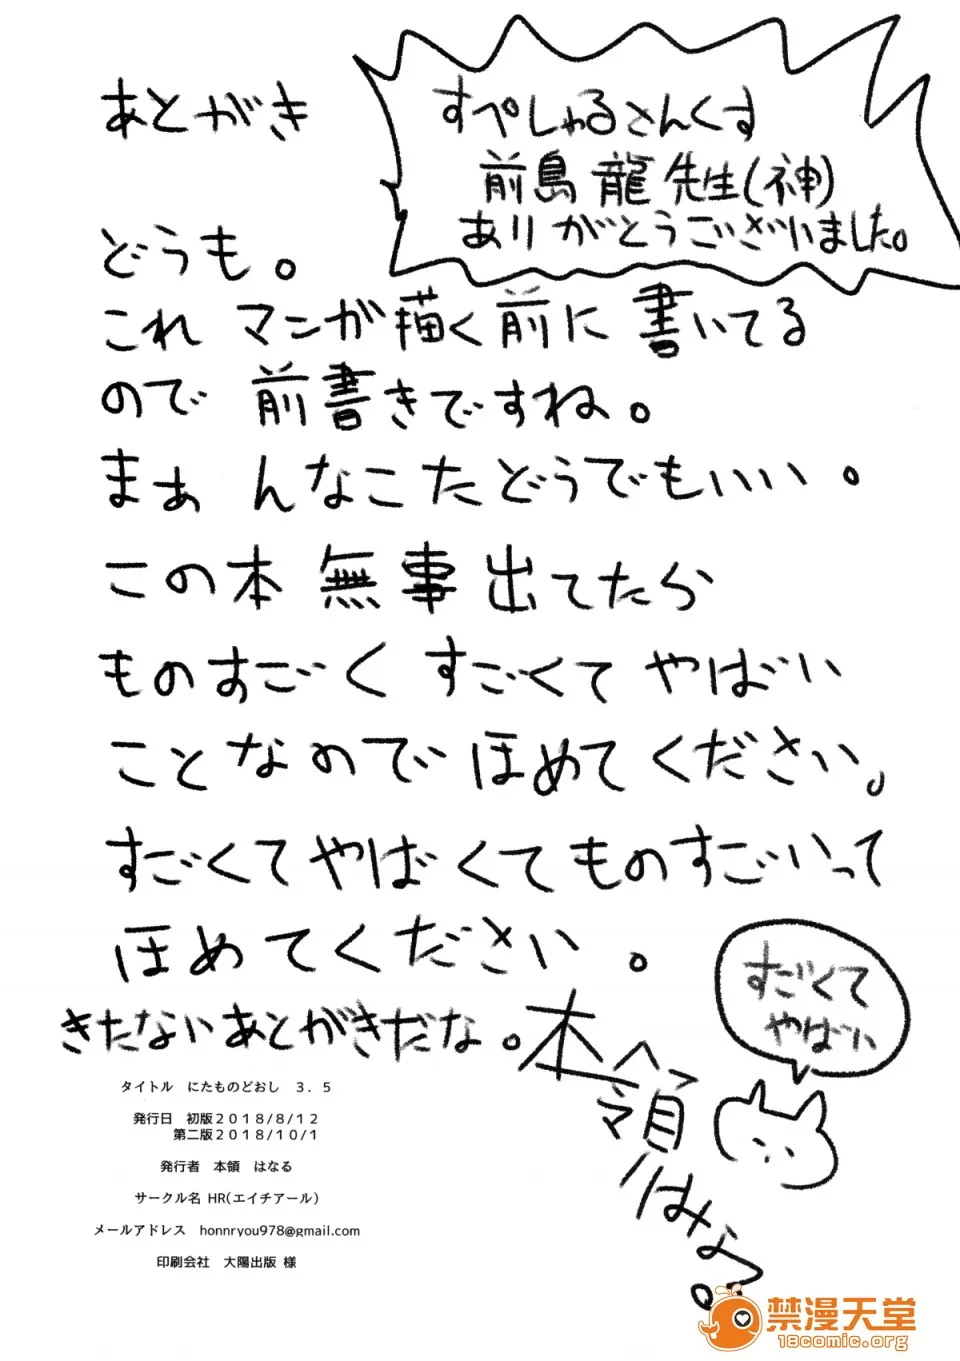 あとがき
すぺしゃるさんくす
前島 龍 先生(神)
ありがとうございました。
どうも。
これ マンガ描く前に 書いてる
ので 前書きですね。
まぁ んなこたどうでもいいい。
この本 無事出てたら
ものすごく すごくて やばい
ことなのでほめてください。
すごくてやばくてものすごいって
ほめてください。
きたないあとがきだな。
本領はなる。
すごくて
やばい
タイトル にたものどおし 3.5
発行日 初版2018/8/12
第二版2018/10/1
発行者 本領 はなる
サークル名 HR(エイチアール)
メールアドレス honnryou978@gmail.com
印刷会社 大陽出版 様
禁漫天堂
18comic.org